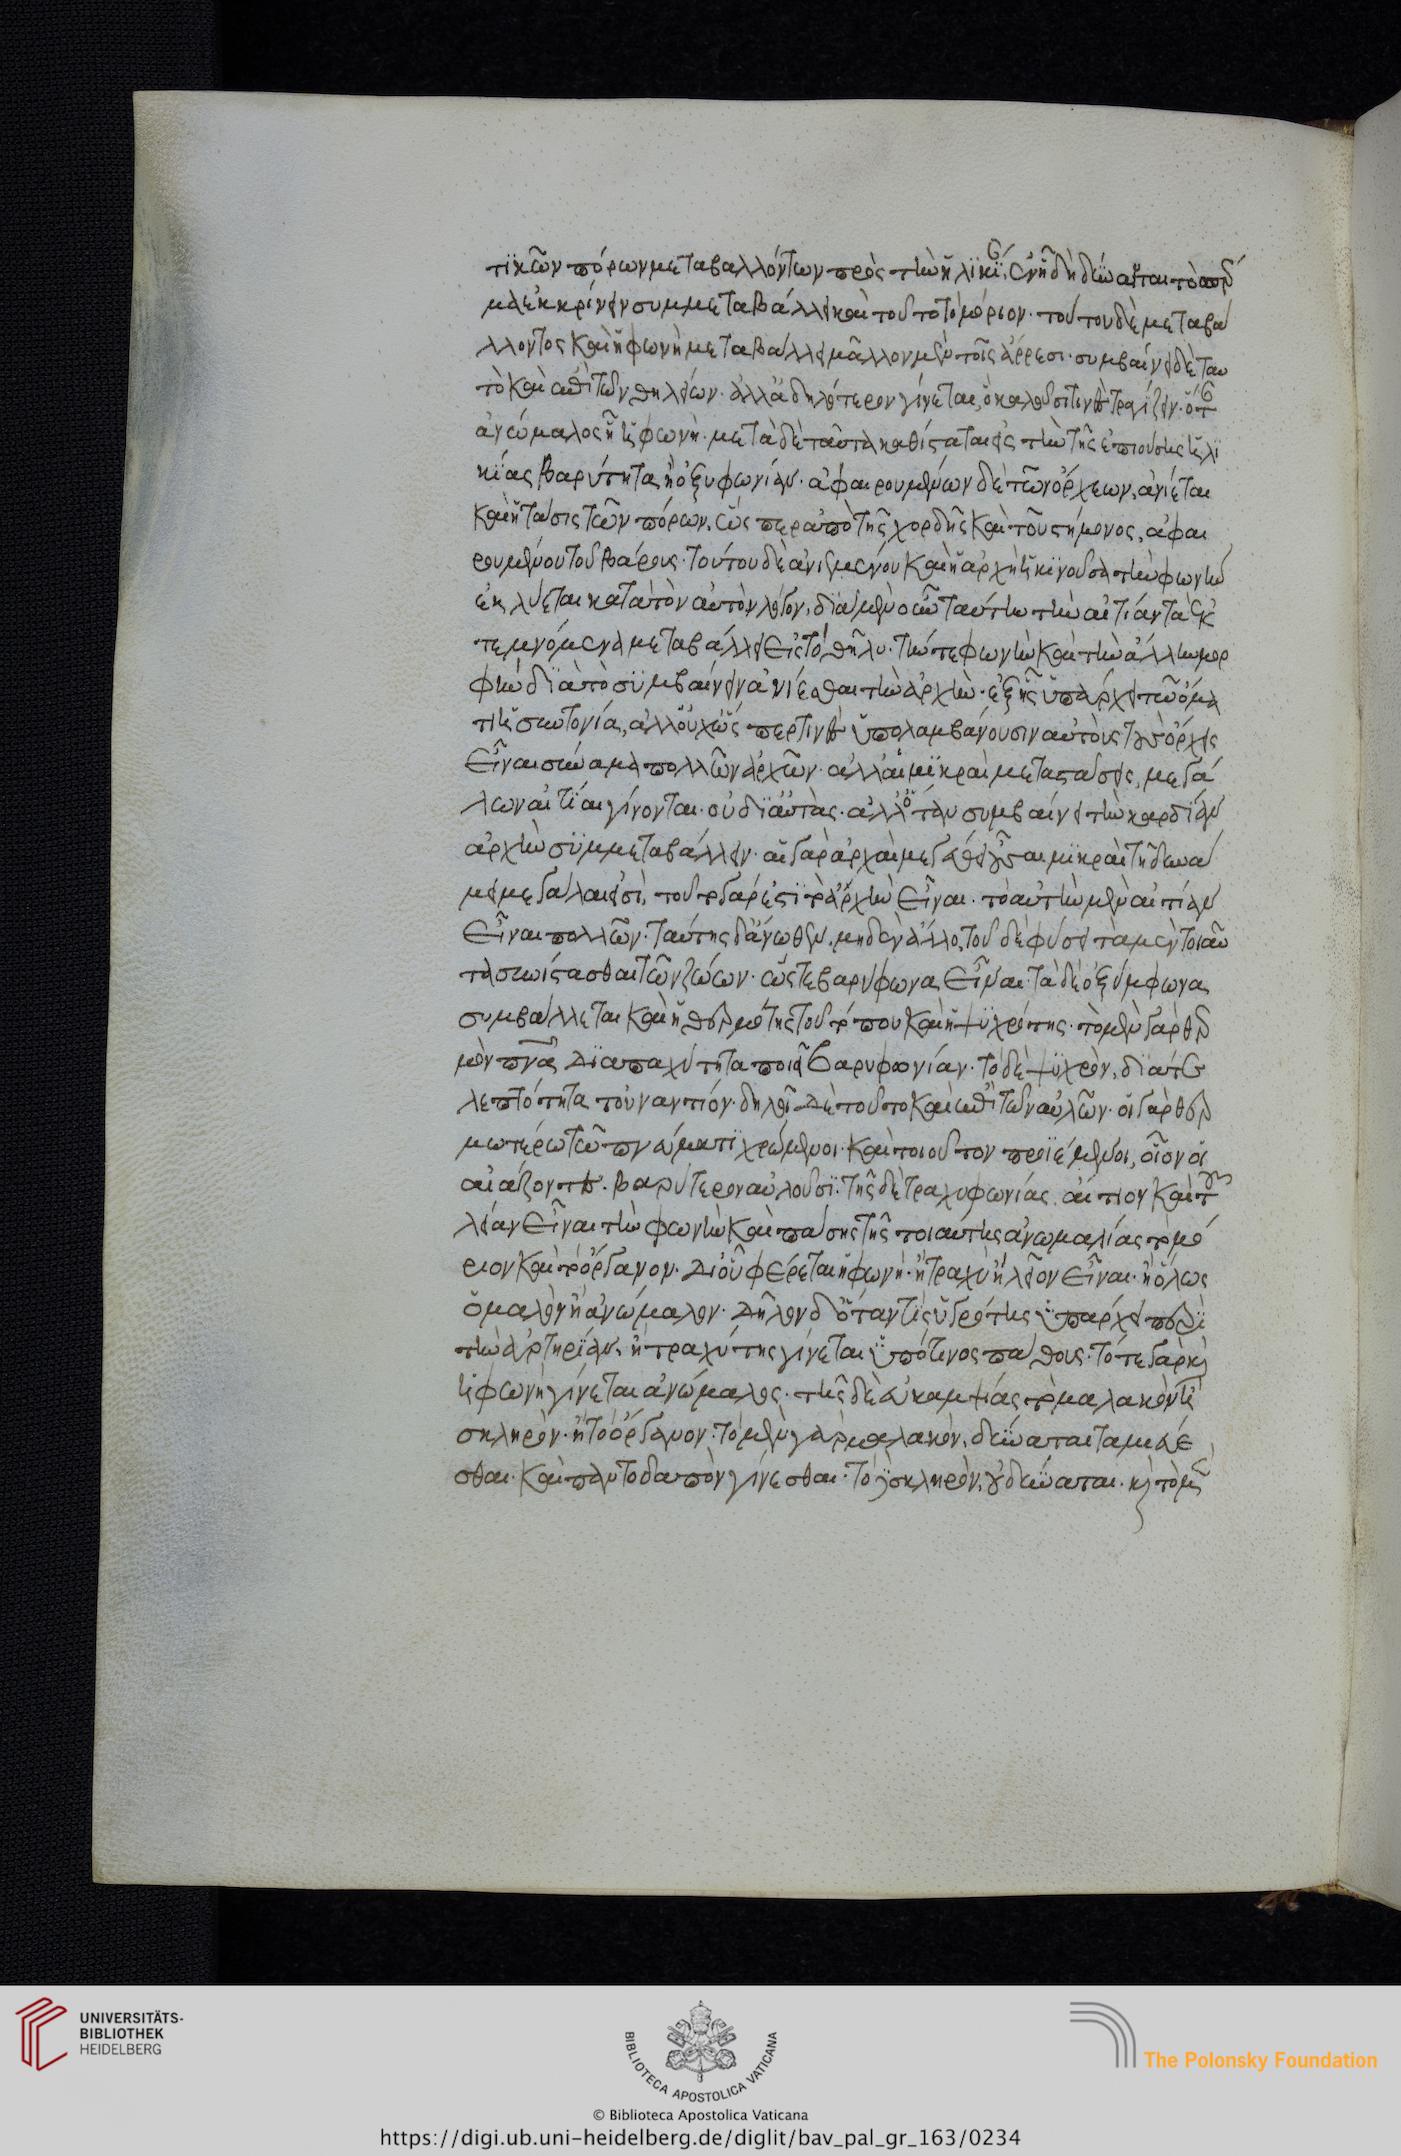 τικῶν πόρων μεταβαλλόντων πρὸς τὴν ἡλικίαν, ἐν ᾗ δὴ δύναται τὸ σπέρ
μα ἐκκρίνειν συμμεταβάλλει καὶ τοῦτο τὸ μόριον· τούτου δὲ μεταβά
λλοντος καὶ ἡ φωνὴ μεταβάλλει μᾶλλον μὲν τοῖς ἄρρεσι· συμβαίνει δὲ ταυ
τὸ καὶ ἐπὶ τῶν θηλειῶν· ἀλλ' ἀδηλότερον γίνεται, ὃ καλοῦσί τινες τραγίζειν· ὅταν
ἀνώμαλος ᾖ ἡ φωνή· μετὰ δὲ ταῦτα καθίσταται εἰς τὴν τῆς ἐπιούσης ἡλι
κίας βαρύτητα ἢ ὀξυφωνίαν· ἀφαιρουμένων δὲ τῶν ὄρχεων, ἀνίεται
καὶ ἡ τάσις τῶν πόρων, ὥς περ ἀπὸ τῆς χορδῆς καὶ τοῦ στήμονος, ἀφαι
ρουμένου τοῦ βάρους· τούτου δὲ ἀνιεμένου καὶ ἡ ἀρχὴ ἡ κινοῦσα τὴν φωνὴν
ἐκλύεται κατὰ τὸν αὐτὸν λόγον, διὰ μὲν οὖν ταύτην τὴν αἰτίαν τὰ ἐκ
τεμνόμενα μεταβάλλει εἰς τὸ θῆλυ· τήν τε φωνὴν καὶ τὴν ἄλλην μορ
φὴν διὰ τὸ συμβαίνειν ἀνίεσθαι τὴν ἀρχὴν· ἐξ ἧς ὑπάρχει τῷ σώμα
τι ἡ συντονία, ἀλλ' οὐχ ὥς περ τινὲς ὑπολαμβάνουσιν αὐτοὺς τοὺς ὄρχεις
εἶναι σύναμα πολλῶν ἀρχῶν· ἀλλ' αἱ μικραὶ μεταστάσεις, μεγά
λων αἰτίαι γίνονται· οὐ δι' αὑτὰς· ἀλλ' ὅταν συμβαίνει τὴν καρδίαν
ἀρχὴν συμμεταβάλλειν· αἱ γὰρ ἀρχαὶ μεγέθει οὖσαι μικραὶ τῇ δυνά
μει μεγάλαι εἰσὶ, τοῦτο γάρ ἐστι τὸ ἀρχὴν εἶναι· τὸ αὐτὴν μὲν αἰτίαν
εἶναι πολλῶν· ταύτης δ' ἄνωθεν, μηδὲν ἄλλο, τοῦ δὲ φύσει τὰ μὲν τοιαῦ
τα συνίστασθαι τῶν ζώων· ὥστε βαρύφωνα εἶναι· τὰ δὲ ὀξύμφωνα
συμβάλλεται καὶ ἡ θερμότης τοῦ τόπου καὶ ἡ ψυχρότης· τὸ μὲν γὰρ θερ
μὸν πνεῦμα διὰ παχύτητα ποιεῖ βαρυφωνίαν· τὸ δὲ ψυχρὸν, διὰ τὴν
λεπτότητα τοὐναντίον· δηλοῖ δὲ τοῦτο καὶ ἐπὶ τῶν αὐλῶν· οἱ γὰρ θερ
μωτέρῳ τῷ πνεύματι χρώμενοι· καὶ τοιοῦτον προϊέμενοι, οἷον οἱ
αἰάζοντες· βαρύτερον αὐλοῦσι· τῆς δὲ τραχυφωνίας, αἴτιον καὶ τοῦ
λείαν εἶναι τὴν φωνὴν καὶ πάσης τῆς τοιαύτης ἀνωμαλίας τὸ μό
ριον καὶ τὸ ὄργανον· δι' οὗ φέρεται ἡ φωνή· ἢ τραχὺ ἢ λεῖον εἶναι· ἢ ὅλως
ὁμαλὸν ἢ ἀνώμαλον· δῆλον δ' ὅταν τις ὑγρότης ὑπάρχει περὶ
τὴν ἀρτηρίαν, ἢ τραχύτης γίνεται ὑπό τινος πάθους· τότε γὰρ καὶ
ἡ φωνὴ γίνεται ἀνώμαλος· τῆς δὲ εὐκαμψίας τὸ μαλακὸν ἢ
σκληρὸν· ἢ τὸ ὄργανον· τὸ μὲν γὰρ μαλακὸν, δύναται ταμιεύε
σθαι· καὶ παντοδαπὸν γίνεσθαι· τὸ δὲ σκληρὸν, οὐ δύναται· καὶ τὸ μὲν
UNIVERSITÄTS-
BIBLIOTHEK
HEIDELBERG
BIBLIOTECA APOSTOLICA VATICANA
The Polonsky Foundation
© Biblioteca Apostolica Vaticana
https://digi.ub.uni-heidelberg.de/diglit/bav_pal_gr_163/0234